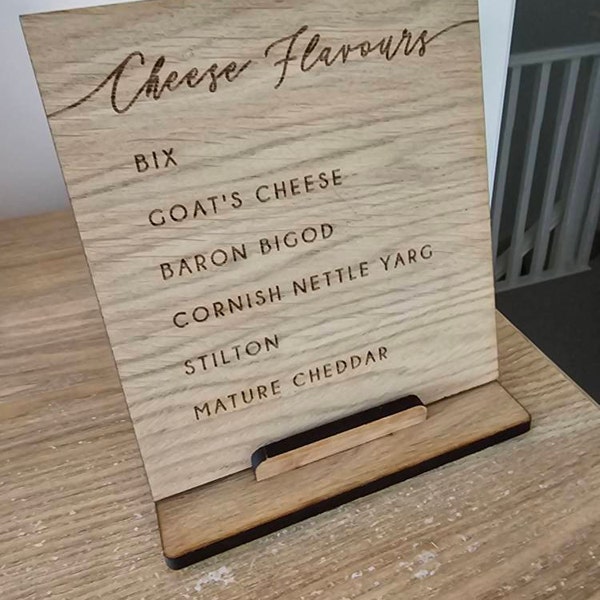 Cheese Flavours
BIX
GOAT'S CHEESE
BARON BIGOD
CORNISH NETTLE YARG
STILTON
MATURE CHEDDAR